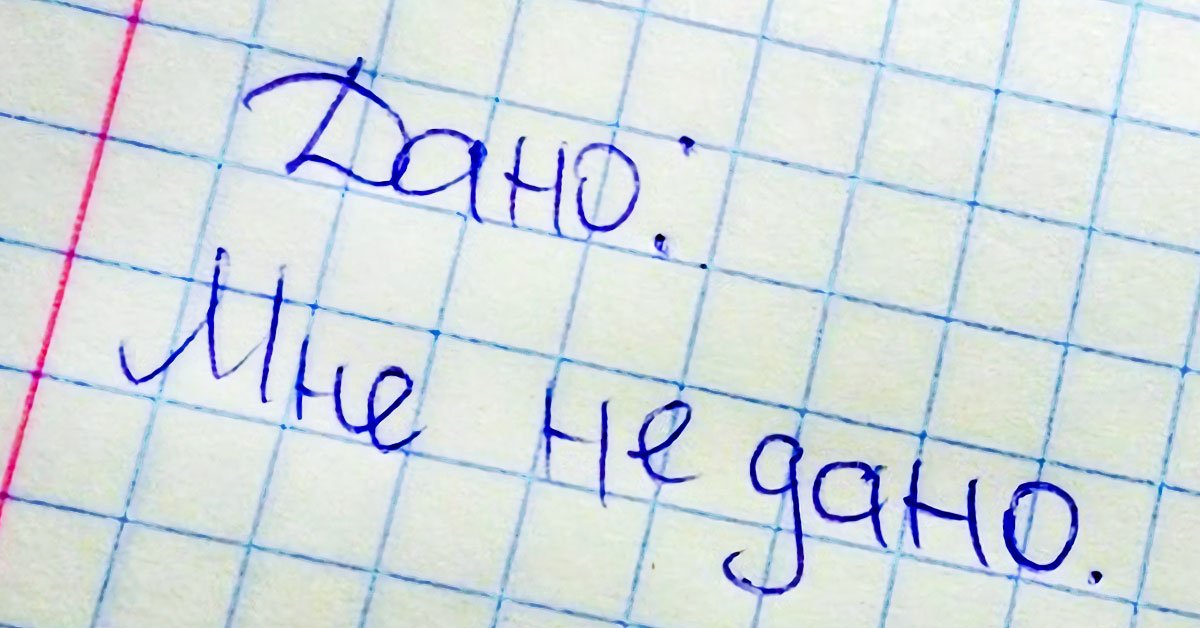 Дано:
Мне не дано.